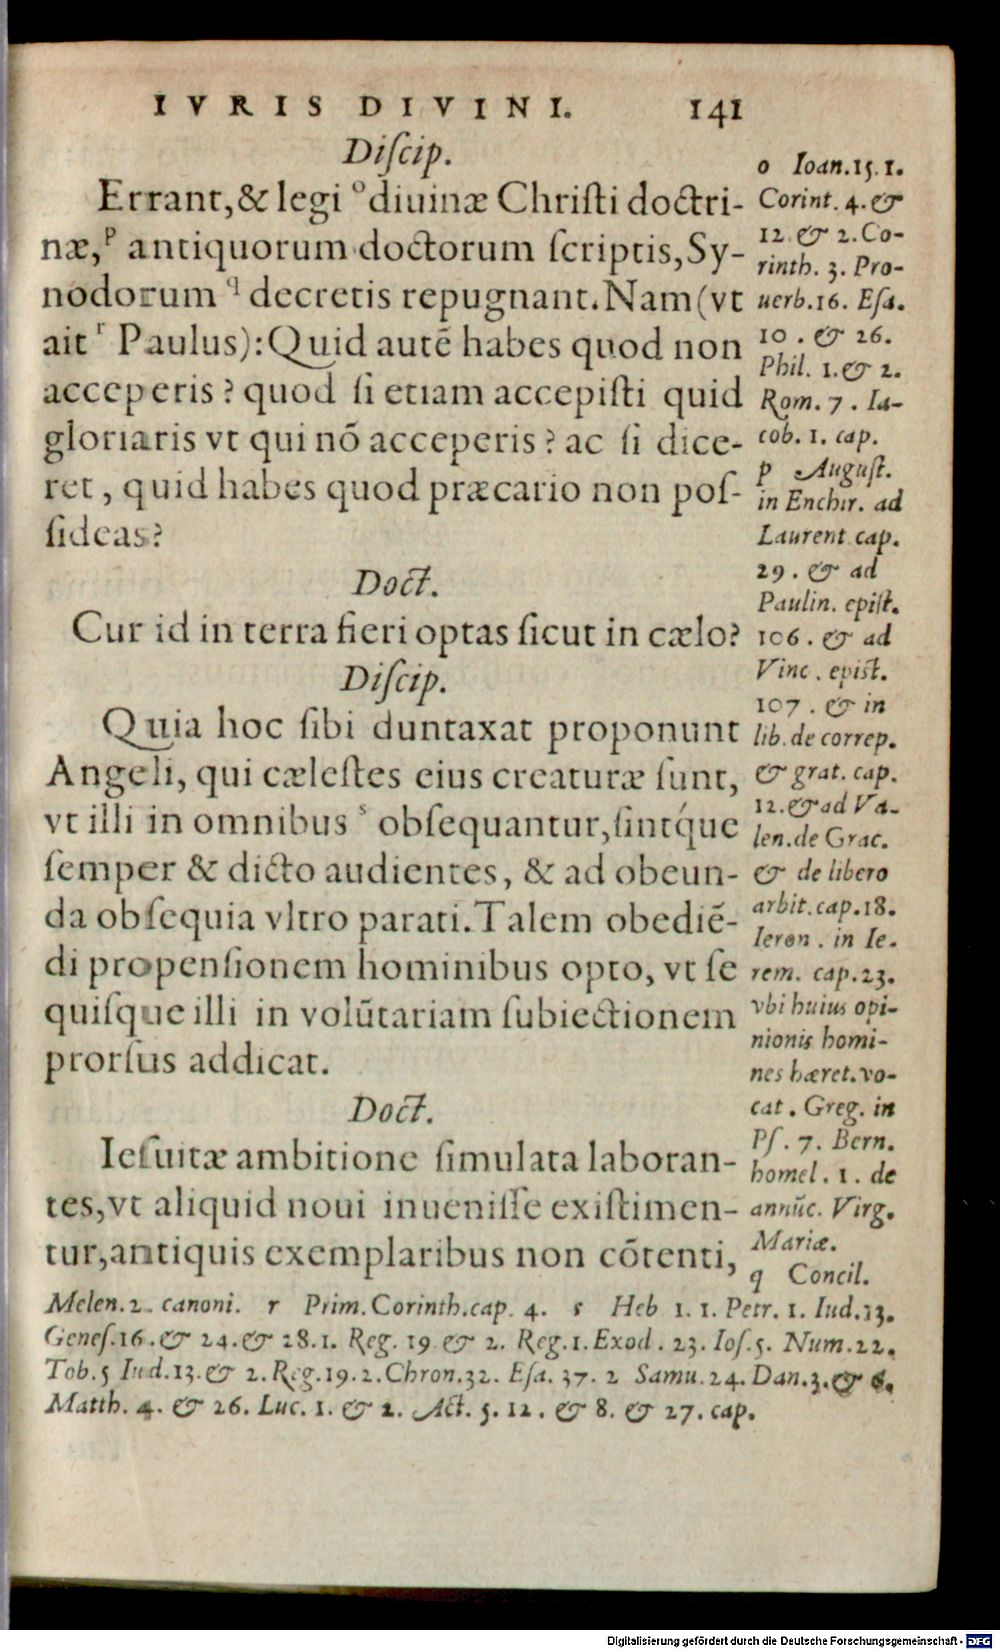 IVRIS DIVINI. 141
Diſcip.
Errant,& legi ᵒ diuinæ Chriſti doctri-
næ,ᵖ antiquorum doctorum ſcriptis,Sy-
nodorum ᑫ decretis repugnant.Nam(vt
ait ʳ Paulus):Quid autē habes quod non
acceperis? quod ſi etiam accepiſti quid
gloriaris vt qui nō acceperis? ac ſi dice-
ret, quid habes quod præcario non poſ-
ſideas?
Doct.
Cur id in terra fieri optas ſicut in cælo?
Diſcip.
Quia hoc ſibi duntaxat proponunt
Angeli, qui cæleſtes eius creaturæ ſunt,
vt illi in omnibus ˢ obſequantur,ſintq́ue
ſemper & dicto audientes, & ad obeun-
da obſequia vltro parati.Talem obediē-
di propenſionem hominibus opto, vt ſe
quiſque illi in volūtariam ſubiectionem
prorſus addicat.
Doct.
Ieſuitæ ambitione ſimulata laboran-
tes,vt aliquid noui inueniſſe exiſtimen-
tur,antiquis exemplaribus non cōtenti,
o Ioan.15.1.
Corint. 4. &
12. & 2. Co-
rinth. 3. Pro-
uerb.16. Eſa.
10. & 26.
Phil. 1. & 2.
Rom. 7. Ia-
cob. 1. cap.
p Auguſt.
in Enchir. ad
Laurent cap.
29. & ad
Paulin. epiſt.
106. & ad
Vinc. epiſt.
107. & in
lib. de correp.
& grat. cap.
12. & ad Va-
len. de Grac.
& de libero
arbit. cap.18.
Ieron. in Ie-
rem. cap.23.
vbi huius opi-
nionis homi-
nes hæret. vo-
cat. Greg. in
Pſ. 7. Bern.
homel. 1. de
annūc. Virg.
Mariæ.
q Concil.
Melen.2. canoni. r Prim.Corinth.cap. 4. s Heb 1. 1. Petr. 1. Iud.13.
Geneſ.16. & 24. & 28.1. Reg. 19 & 2. Reg.1.Exod. 23. Ioſ.5. Num.22.
Tob.5 Iud.13. & 2. Reg.19.2.Chron.32. Eſa. 37. 2 Samu.24.Dan.3. & 6.
Matth. 4. & 26. Luc. 1. & 2. Act. 5. 12. & 8. & 27. cap.
Digitalisierung gefördert durch die Deutsche Forschungsgemeinschaft - DFG